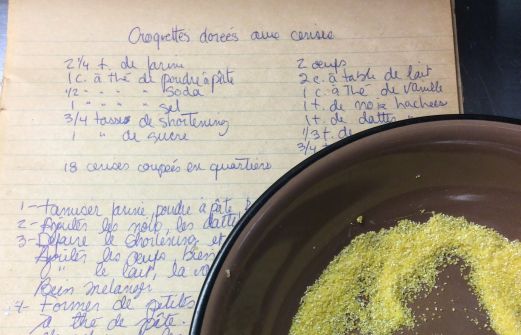 Croquettes dorées aux cerises
2 1/4 t. de farine
1 c. à thé de poudre à pâte
1/2 " " " " Soda
1 " " " " sel
3/4 tasse de shortening
1 " de sucre
2 oeufs
2 c. à table de lait
1 c. à thé de vanille
1 t. de noix hachées
1 t. de dattes "
1/3 t. de
3/4 t.
18 cerises coupées en quartiers
1 - Tamiser farine, poudre à pâte,
2 - Ajouter les noix, les dattes
3 - Défaire le shortening et
Ajouter les oeufs bien
" le lait, la va
Bien mélanger
4 - Former de petites
à thé de pâte.